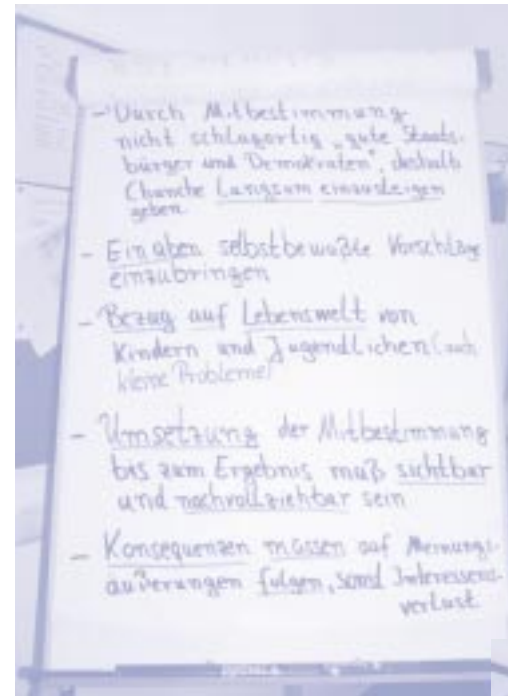 - Durch Mitbestimmung
nicht schlagartig „gute Staats-
bürger und Demokraten", deshalb
Chanche langsam einzusteigen
geben
- Einüben selbstbewußte Vorschläge
einzubringen
- Bezug auf Lebenswelt von
Kindern und Jugendlichen (auch
kleine Probleme)
- Umsetzung der Mitbestimmung
bis zum Ergebnis muß sichtbar
und nachvollziehbar sein
- Konsequenzen müssen auf Meinungs-
äußerungen folgen, sonst Interessens-
verlust